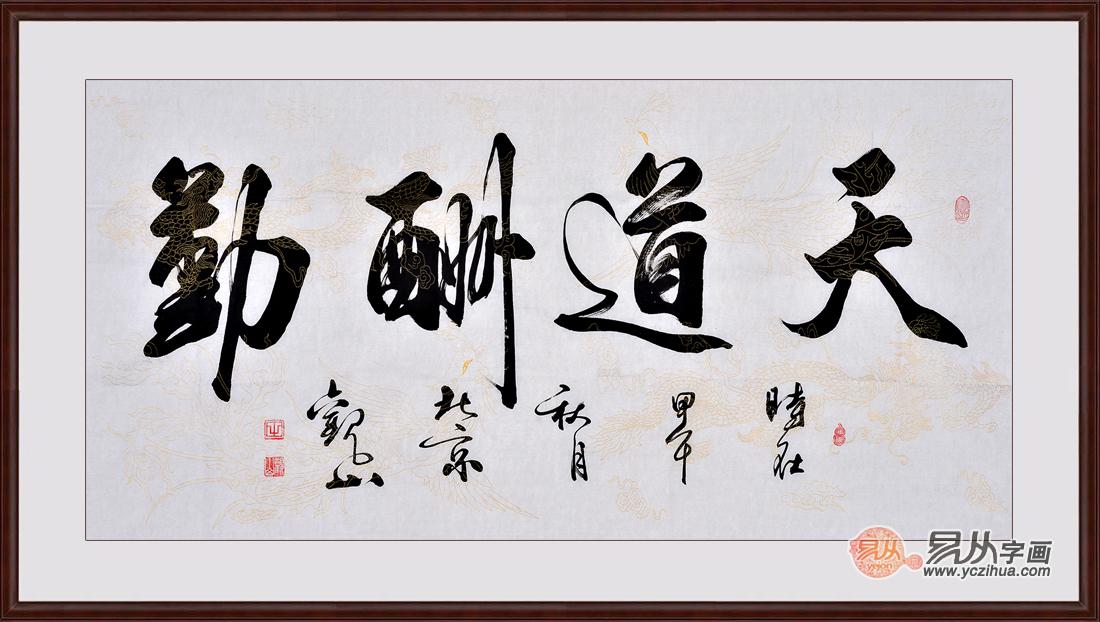 天道酬勤
時在甲午秋月北京觀山
易从
yicon
易从字画
www.yczihua.com